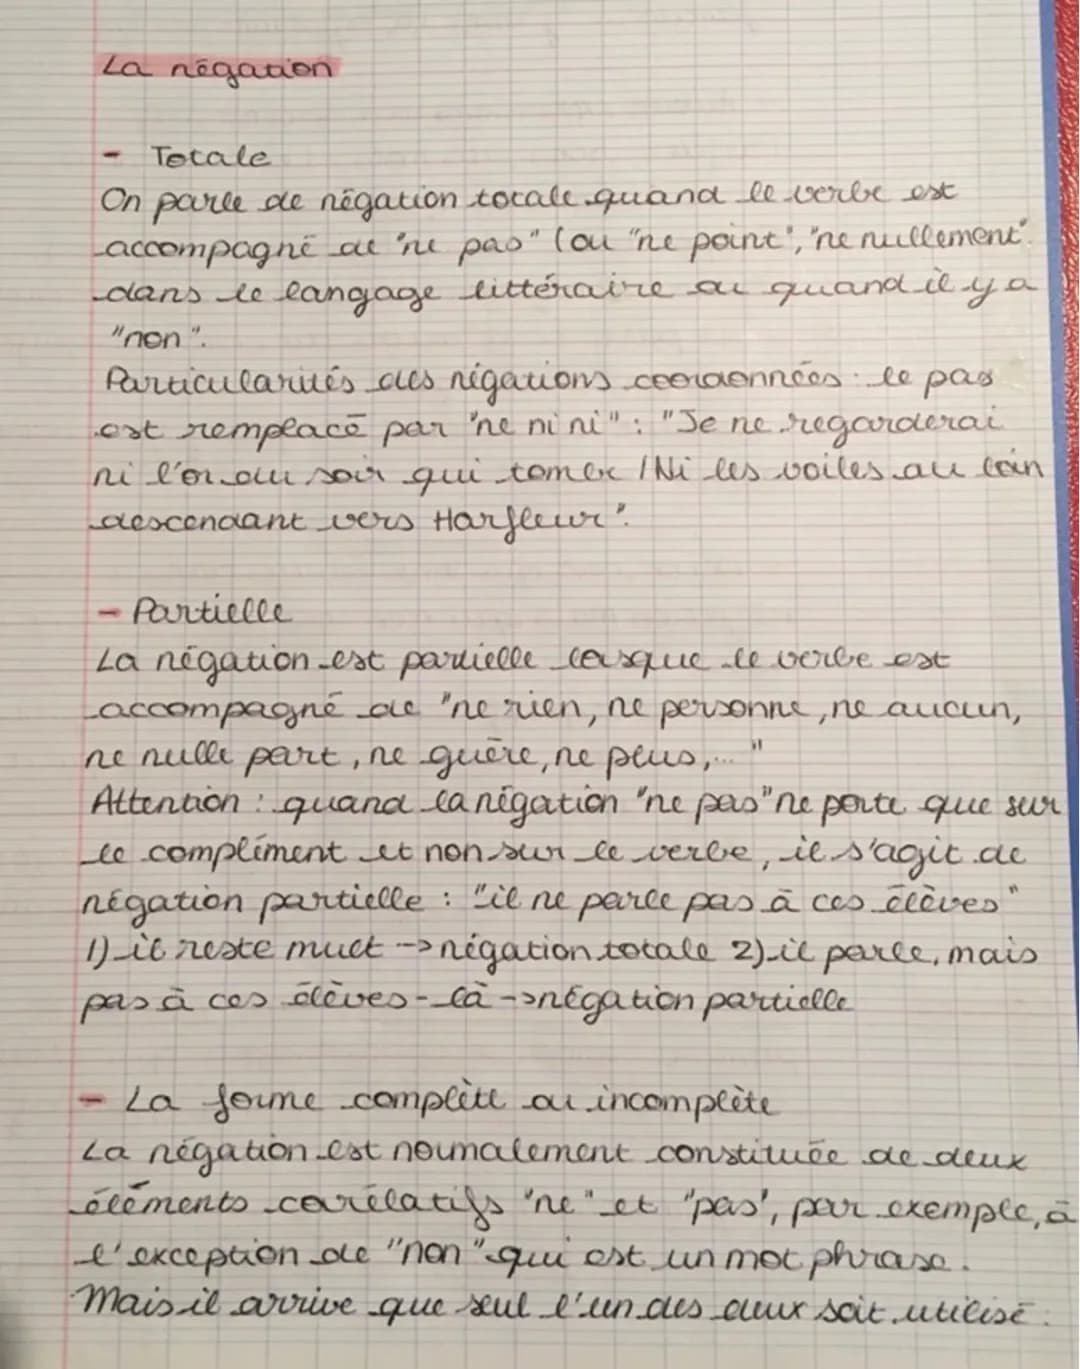 La négation
- Totale
On parle de négation totale quand le verbe est
accompagné de "ne pas" (ou "ne point", "ne nullement"
dans le langage littéraire ou quand il y a
"non".
Particularités des négations coordonnées : le pas
est remplacé par "ne ni ni" : "Je ne regarderai
ni l'or du soir qui tombe / Ni les voiles au loin
descendant vers Harfleur".
- Partielle
La négation est partielle lorsque le verbe est
accompagné de "ne rien, ne personne, ne aucun,
ne nulle part, ne guère, ne plus,... "
Attention : quand la négation "ne pas" ne porte que sur
le compliment et non sur le verbe, il s'agit de
négation partielle : "il ne parle pas à ces élèves"
1) il reste muet -> négation totale 2) il parle, mais
pas à ces élèves-là -> négation partielle
- La forme complète ou incomplète
La négation est normalement constituée de deux
éléments corrélatifs "ne" et "pas", par exemple, à
l'exception de "non" qui est un mot phrase.
Mais il arrive que seul l'un des deux soit utilisé.